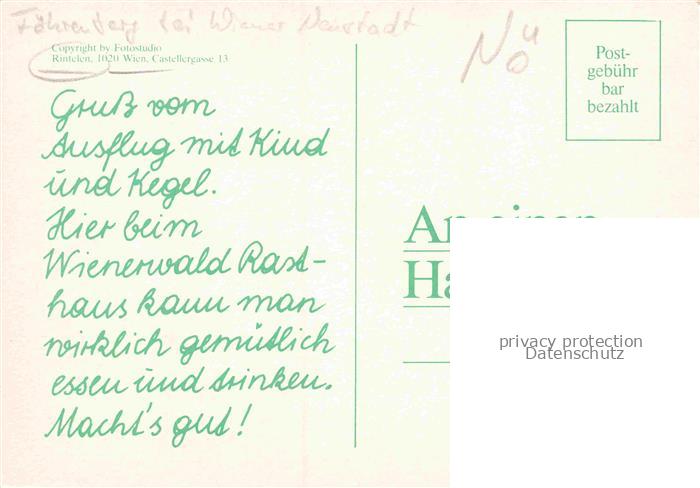 Föhrenberg bei Wiener Neustadt
Copyright by Fotostudio
Rintelen, 1020 Wien, Castellezgasse 13
NÖ
Post-
gebühr
bar
bezahlt
Gruß vom
Ausflug mit Kind
und Kegel.
Hier beim
Wienerwald Rast-
haus kann man
wirklich gemütlich
essen und trinken.
Macht's gut!
An einen
privacy protection
Datenschutz